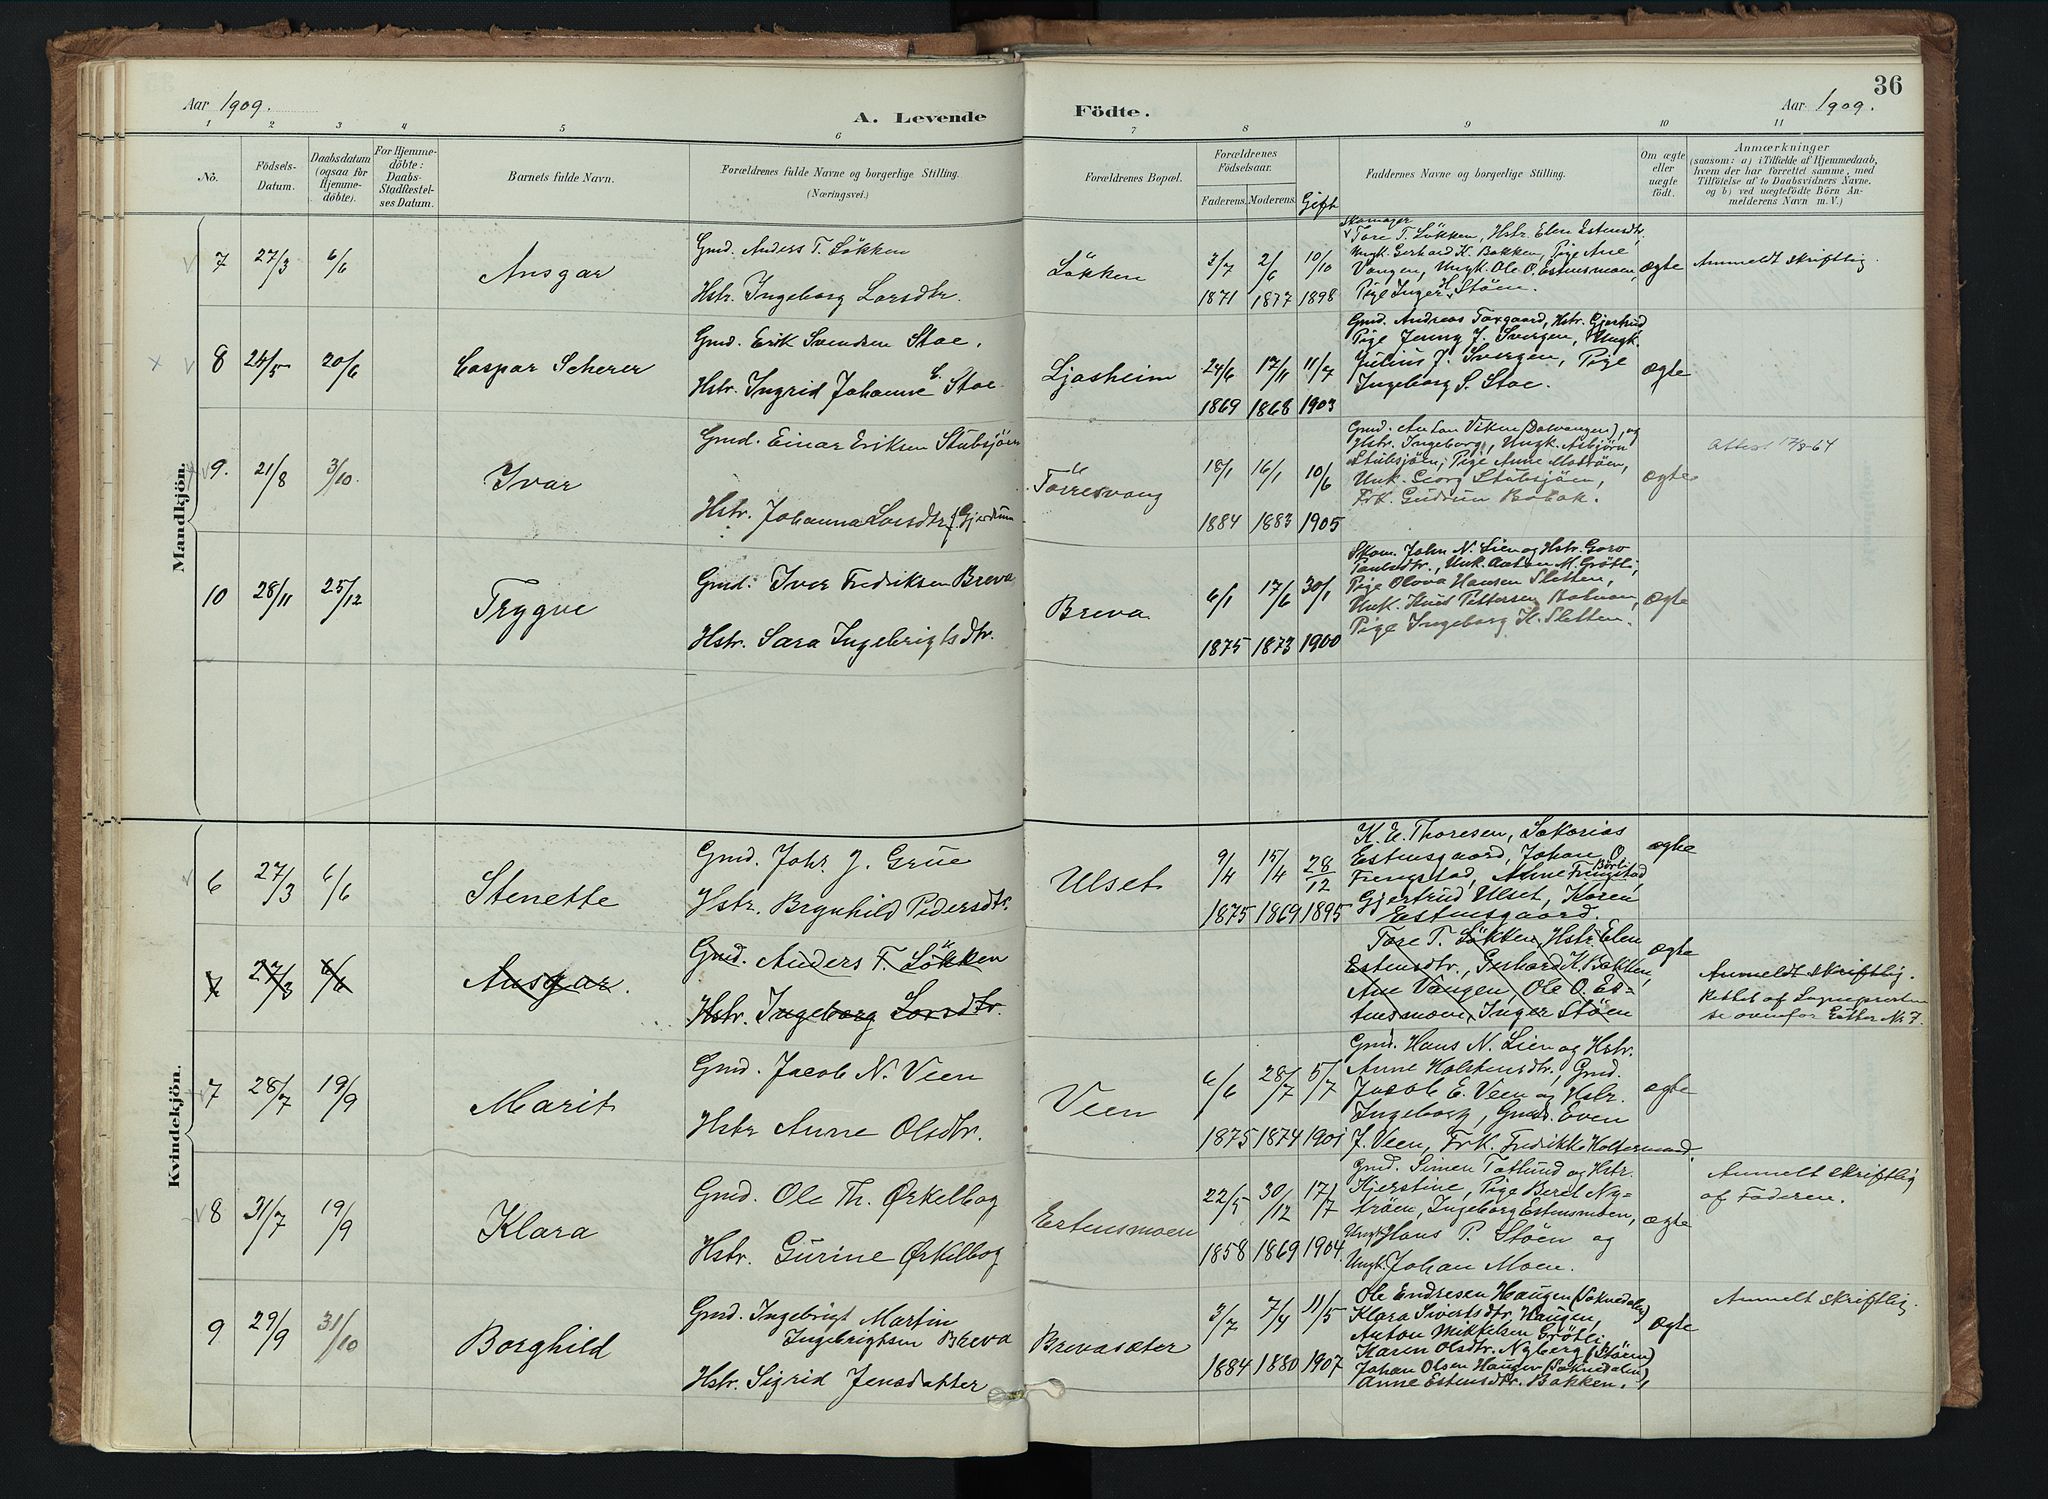 Aar 1909.
A. Levende
Födte.
36
Aar 1909.
1 2 3 4 5 6 7 8 9 10 11
No.
Födsels-
Datum.
Daabsdatum
(ogsaa for
Hjemme-
döbte).
For Hjemme-
döbte:
Daabs-
Stadfæstel-
ses Datum.
Barnets fulde Navn.
Forældrenes fulde Navne og borgerlige Stilling.
(Næringsvei.)
Forældrenes Bopæl.
Forældrenes
Födselsaar.
Faderens. Moderens. Gift
Faddernes Navne og borgerlige Stilling.
Om ægte
eller
uægte
födt.
Anmærkninger
(saasom: a) i Tilfælde af Hjemmedaab,
hvem der har forrettet samme, med
Tilföielse af to Daabsvidners Navne,
og b) ved uægtefödte Börn An-
melderens Navn m. V.)
Mandkjön.
7 27/3 6/6 Ansgar
Gmd. Anders T. Løkken
Hstr. Ingeborg Larsdtr.
Løkken
3/7 2/6 10/10
1871 1877 1898
Skomager
Tore T. Løkken, Hstr. Elen Estensdtr.
Ungk. Gerhard K. Bakken, Pige Ane
Vangen, Ungk. Ole O. Estensmoen,
Pige Inger H. Støen.
ægte
Anmeldt skriftlig.
8 24/5 20/6 Caspar Scherer
Gmd. Erik Svendsen Stoe.
Hstr. Ingrid Johanne C. Stoe
Ljosheim
24/6 17/11 11/7
1869 1868 1903
Gmd. Andreas Taxgaard, Hstr. Gjertrud
Pige Jenny J. Svergen, Ungk.
Julius J. Svergen, Pige
Ingeborg S. Stoe.
ægte
9. 21/8 3/10. Ivar
Gmd. Einar Eriksen Stubsjøen
Hstr. Johanna Larsdtr. f. Gjerdrum
Torresvang
18/1 16/1 10/6
1884 1883 1905
Gmd. Anton Viken (Dalvangen), og
Hstr. Ingeborg, Ungk. Asbjørn
Stubsjøen; Pige Anne Mostøen,
Unk. Georg Stubsjøen,
Frk. Gudrun Bakak.
ægte
Attest 17/8-64
10 28/11 25/12 Trygve
Gmd. Iver Fredriksen Breva
Hstr. Sara Ingebrigtsdtr.
Breva
6/1 17/6 30/1
1875 1873 1900
Skom. John N. Lien og Hstr. Goro
Paulsdtr., Unk. Anton M. Grøtli,
Pige Olova Hansen Sletten,
Unk. Knut Pettersen Botnan,
Pige Ingeborg H. Sletten.
ægte
Kvindekjön.
6 27/3 6/6 Stenette
Gmd. Johs. J. Grue
Hstr. Brynhild Pedersdtr.
Ulset
9/4 15/4 28/12
1875 1869 1895
K. E. Thoresen, Sakarias
Estensgaard, Johan O.
Frengstad, Anne Børli
Gjertrud Ulset, Karen
Estensgaard.
ægte
7 27/3 6/6 Ansgar.
Gmd. Anders T. Løkken
Hstr. Ingeborg Larsdtr.
Tore T. Løkken, Hstr. Elen
Estensdtr., Gerhard K. Bakken,
Ane Vangen, Ole O. Es-
tensmoen, Inger Støen
ægte
Anmeldt skriftlig.
Rettet af Sognepresten
se ovenfor Gutter No 7.
7 28/7 19/9 Marit
Gmd. Jacob N. Veen
Hstr Anne Olsdtr.
Veen
6/6 28/7 5/7
1875 1874 1901
Gmd. Hans N. Lien og Hstr.
Anne Holstensdtr, Gmd.
Jacob E. Veen og Hstr.
Ingeborg, Gmds. Even
J. Veen, Frk. Fredikke Holtermand.
ægte
8 31/7 19/9 Klara
Gmd. Ole Th. Ørkelbog
Hstr. Gurine Ørkelbog
Estensmoen
22/5 30/12 17/7
1858 1869 1904.
Gmd. Simen Tatlund og Hstr.
Kjerstine, Pige Beret Ny-
trøen, Ingeborg Estensmoen,
Ungk. Hans P. Støen og
Ungk. Johan Moen.
ægte
Anmelt skriftlig
af Faderen.
9 29/9 31/10 Borghild
Gmd. Ingebrigt Martin
Ingebrigtsen Breva
Hstr. Sigrid Jensdatter
Brevasæter
3/7 7/4 11/5
1884 1880 1907
Ole Endresen Haugen (Soknedalen)
Klara Sivertsdtr. Haugen,
Anton Mikkelsen Grøtli,
Karen Olsdtr. Nyberg (Støen)
Johan Olsen Haugen (Soknedalen),
Anne Estensdtr. Bakken.
ægte
Anmelt skriftlig.